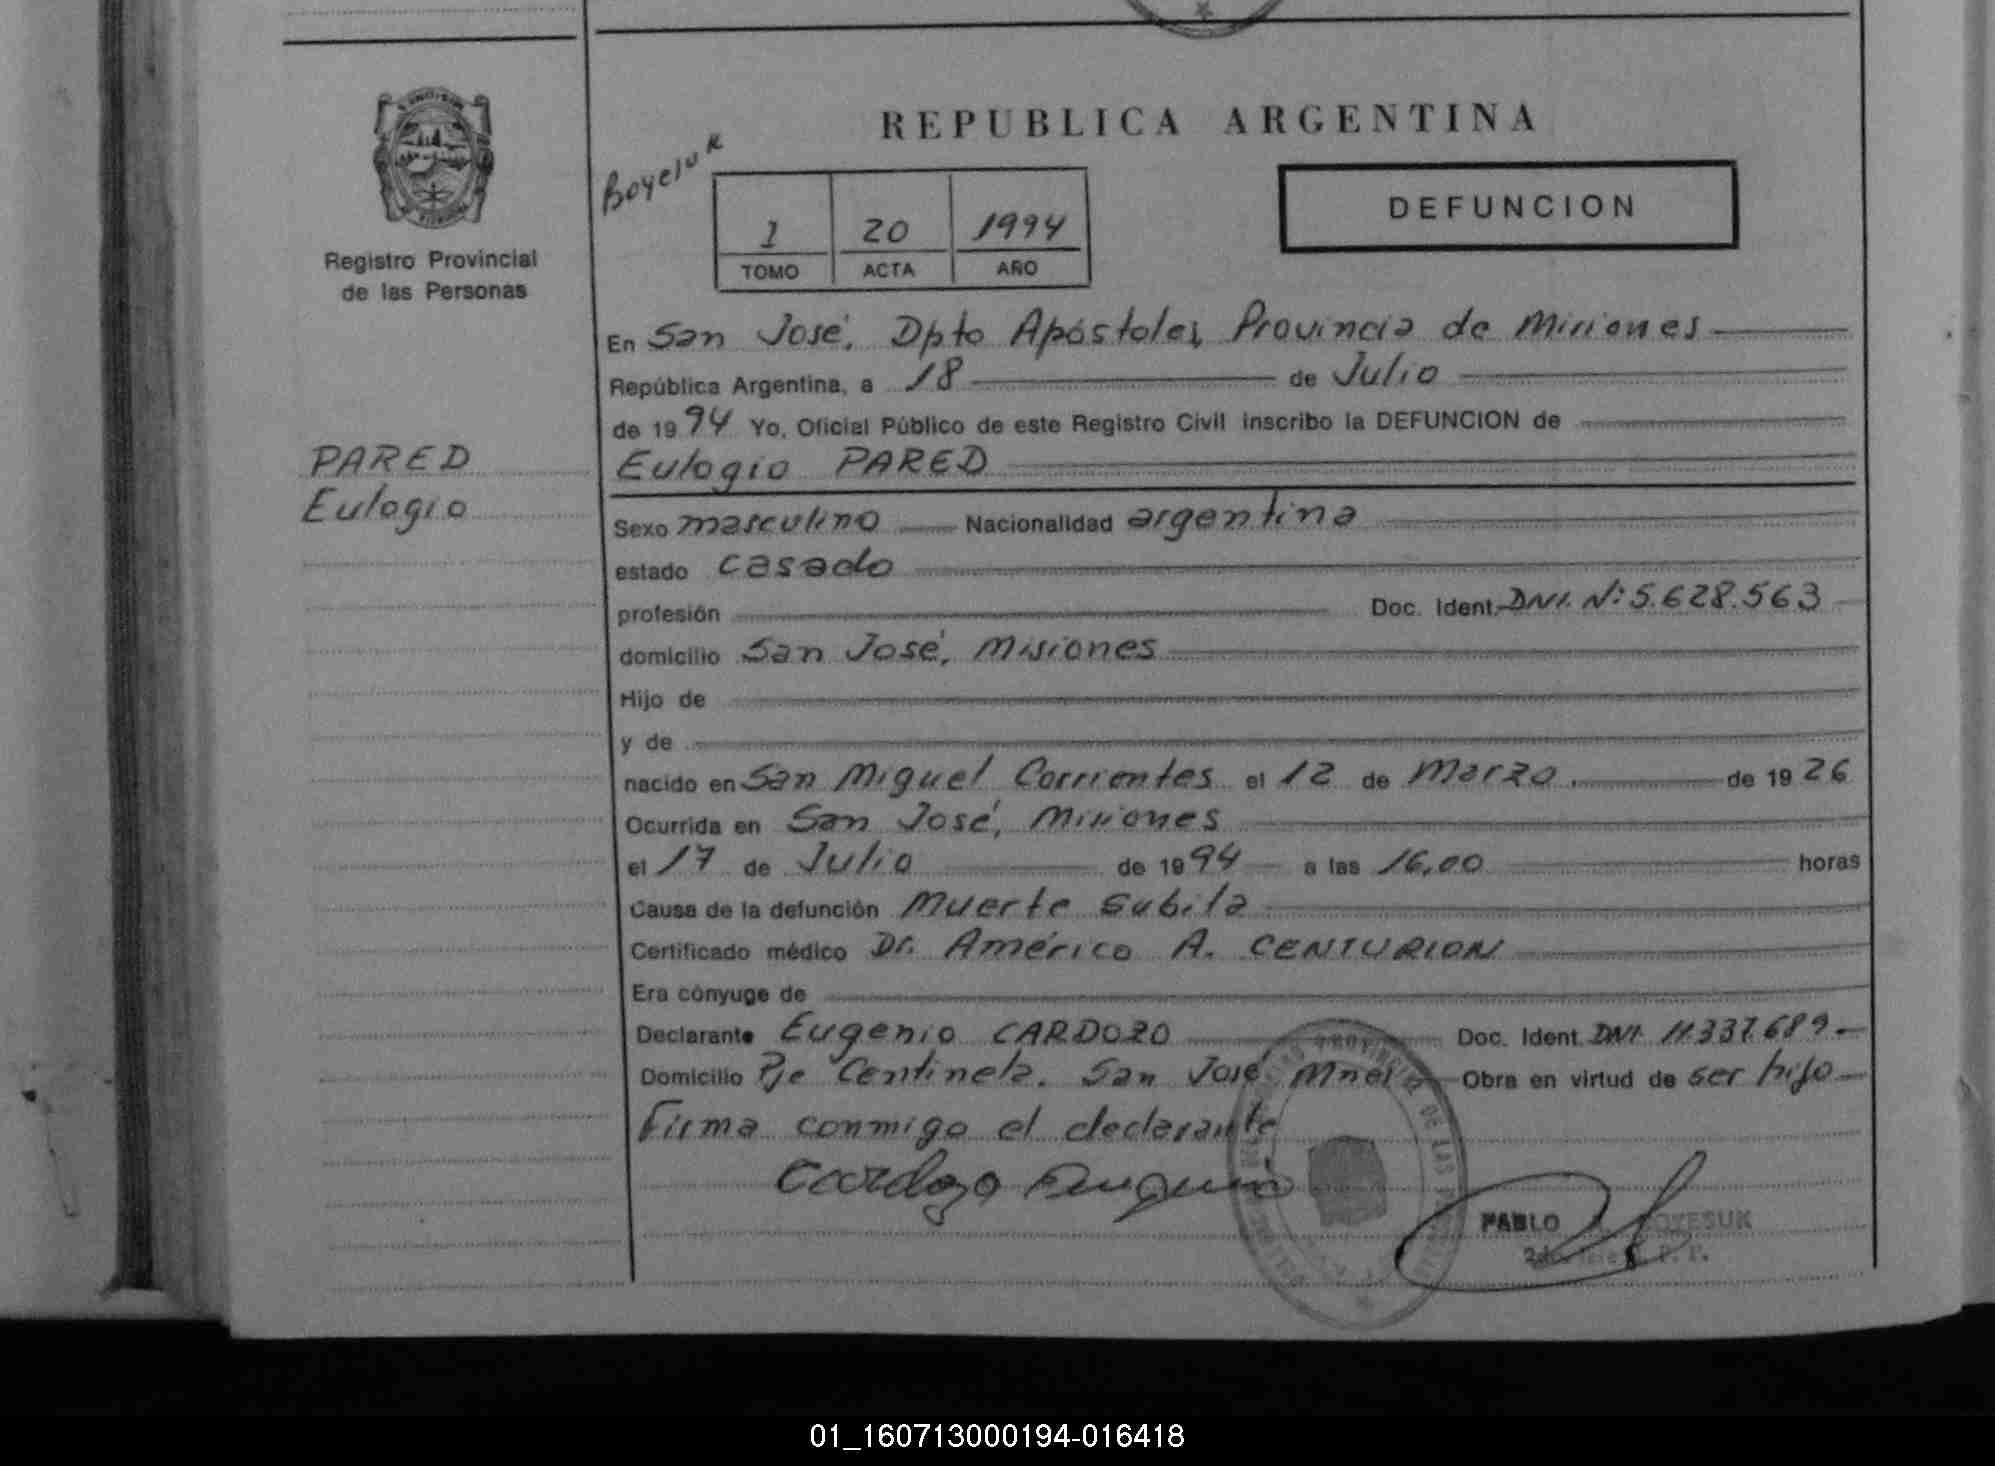 REPUBLICA ARGENTINA
Boyesuk
1 20 1994
TOMO ACTA AÑO
DEFUNCION
Registro Provincial
de las Personas
En San José, Dpto Apóstoles, Provincia de Misiones
República Argentina, a 18 de Julio
de 1994 Yo, Oficial Público de este Registro Civil inscribo la DEFUNCION de
PARED
Eulogio
Eulogio PARED
Sexo masculino Nacionalidad argentina
estado casado
profesión Doc. Ident. DNI. Nº 5.628.563
domicilio San José, Misiones
Hijo de
y de
nacido en San Miguel Corrientes el 12 de Marzo. de 1926
Ocurrida en San José, Misiones
el 17 de Julio de 1994 a las 16,00 horas
Causa de la defunción Muerte subita
Certificado médico Dr. Américo A. CENTURION
Era cónyuge de
Declarante Eugenio CARDOZO Doc. Ident. DNI. 11.337.689.-
Domicilio Pje Centinela. San José Mnes Obra en virtud de ser hijo
Firma conmigo el declarante
Cardozo Eugenio
PABLO BOYESUK
01_160713000194-016418